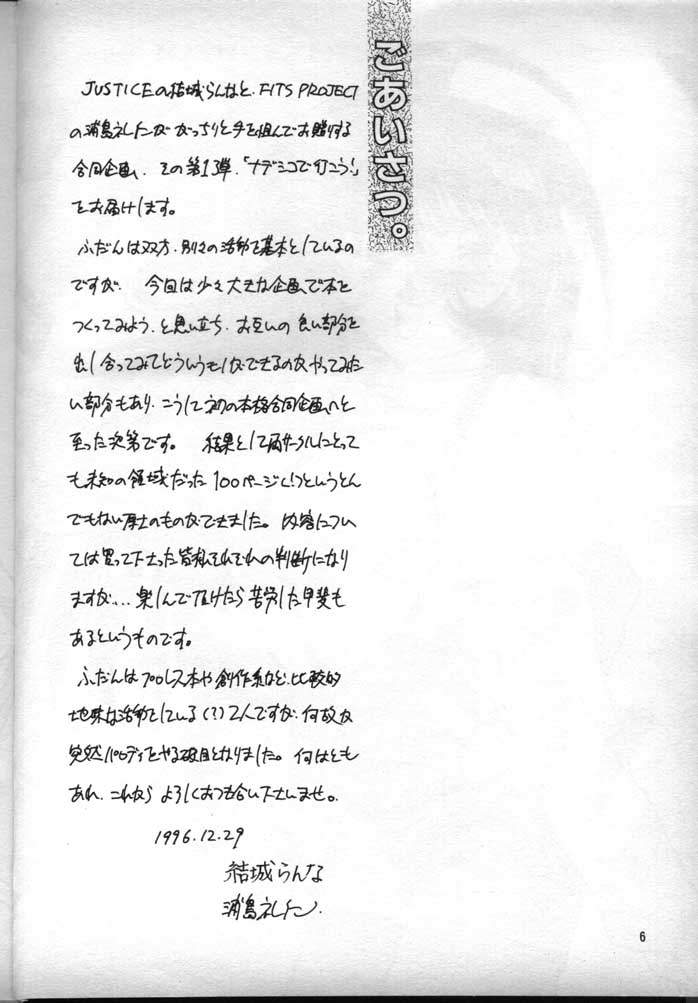 ごあいさつ。
JUSTICEの結城らんなと、FITS PROJECT
の浦島礼仁がガッちりと手を組んでお贈りする
合同企画、その第1弾、「ナデシコで行こう!」
をお届けします。
ふだんは双方、別々の活動を基本としているの
ですが、今回は少々大きな企画で本を
つくってみよう、と思い立ち、お互いの良い部分を
出し合ってみてどういうモノができるのかやってみた
い部分もあり、こうして初の本格合同企画へと
至った次第です。結果として両サークルにとって
も未知の領域だった100ページ(!)というとん
でもない厚さのものができました。内容につい
ては買って下さった皆様それぞれの判断になり
ますが…、楽しんで頂けたら苦労した甲斐も
あるというものです。
ふだんはプロレス本や創作系など、比較的
地味な活動をしている(?)2人ですが、何故か
突然パロディをやる破目となりました。何はとも
あれ、これから よろしくおつき合い下さいませ。
1996.12.29
結城らんな
6